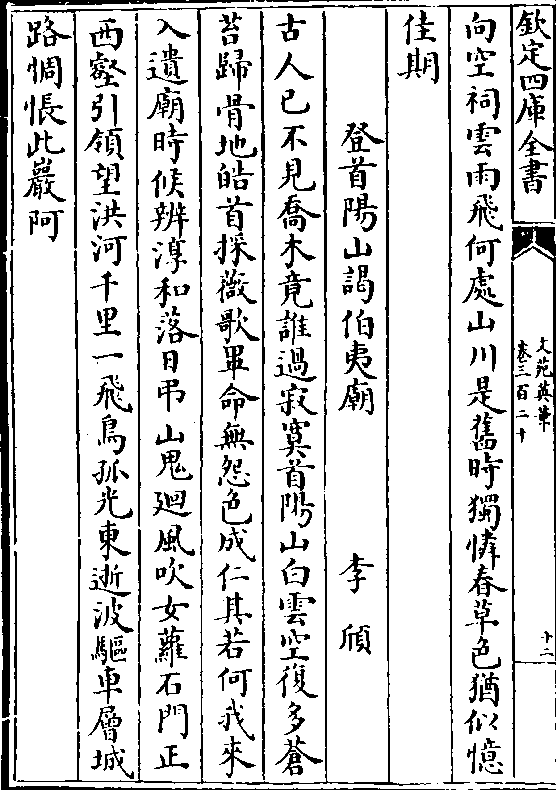 欽定四庫全書
文苑英華
卷三百二十
十二
向空祠雲雨飛何處山川是舊時獨憐春草色猶似憶
佳期
登首陽山謁伯夷廟
李頎
古人已不見喬木竟誰過寂寞首陽山白雲空復多蒼
苔歸骨地皓首採薇歌畢命無怨色成仁其若何我來
入遺廟時候辨淳和落日弔山鬼廻風吹女蘿石門正
西豁引領望洪河千里一飛鳥孤光東逝波驅車層城
路惆悵此巖阿